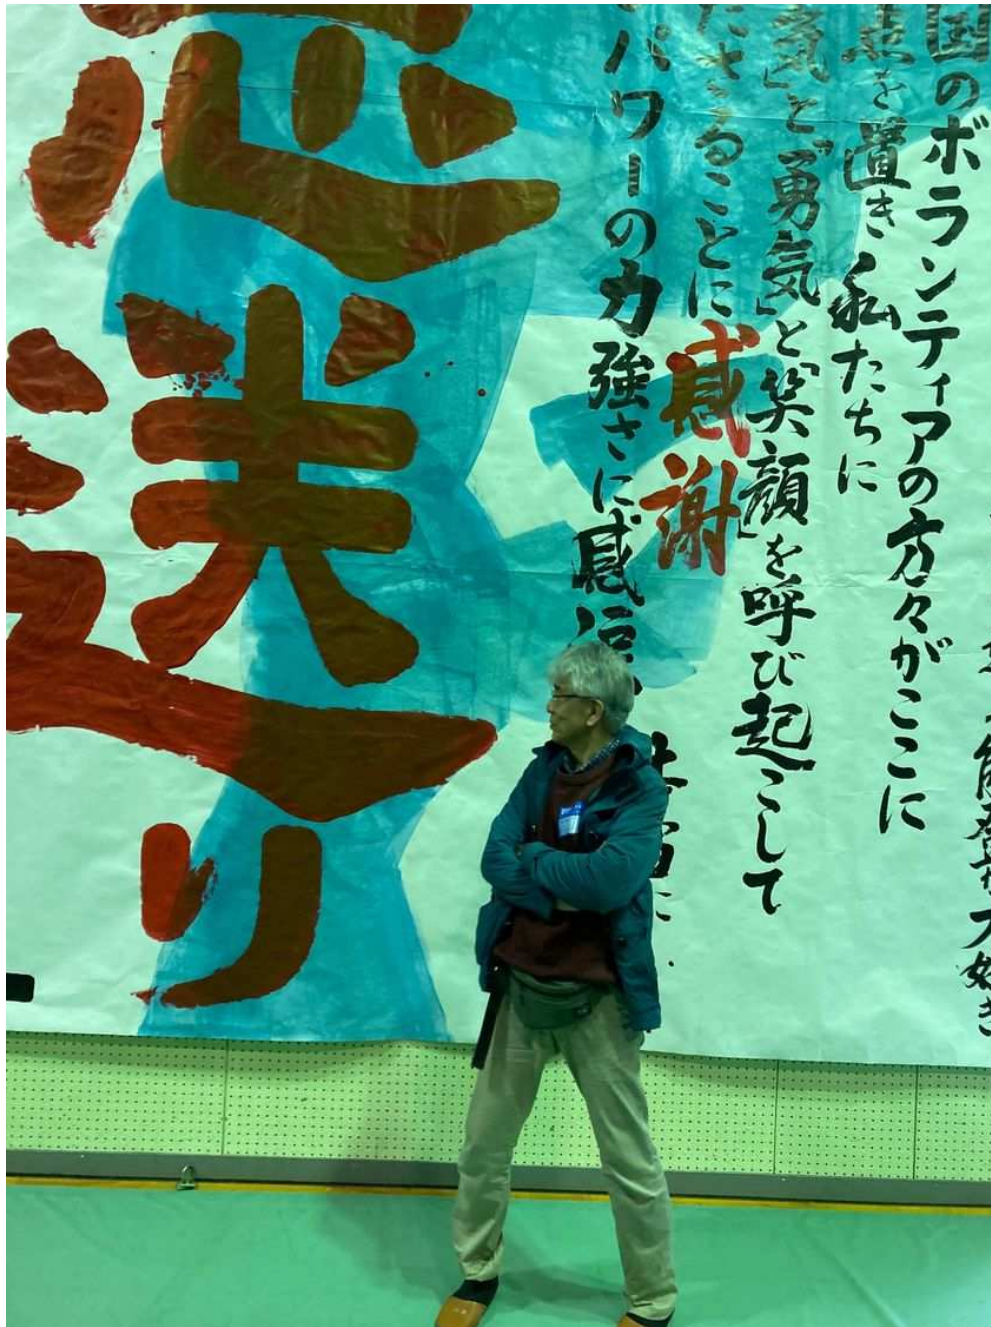 能登が大好き
国のボランティアの方々がここに
点を置き私たちに
気」と「勇気」と「笑顔」を呼び起こして
ださることに感謝
パワーの力強さに感
送り